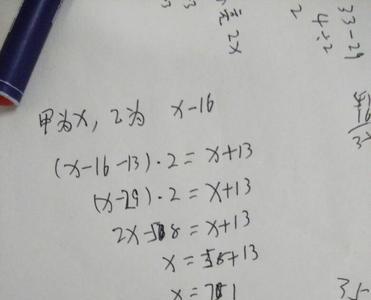 元 2x
2
4÷2
33-29
甲为x, 乙为 x-16
(x-16-13)·2=x+13
(x-29)·2=x+13
2x-58=x+13
x=58+13
x=71